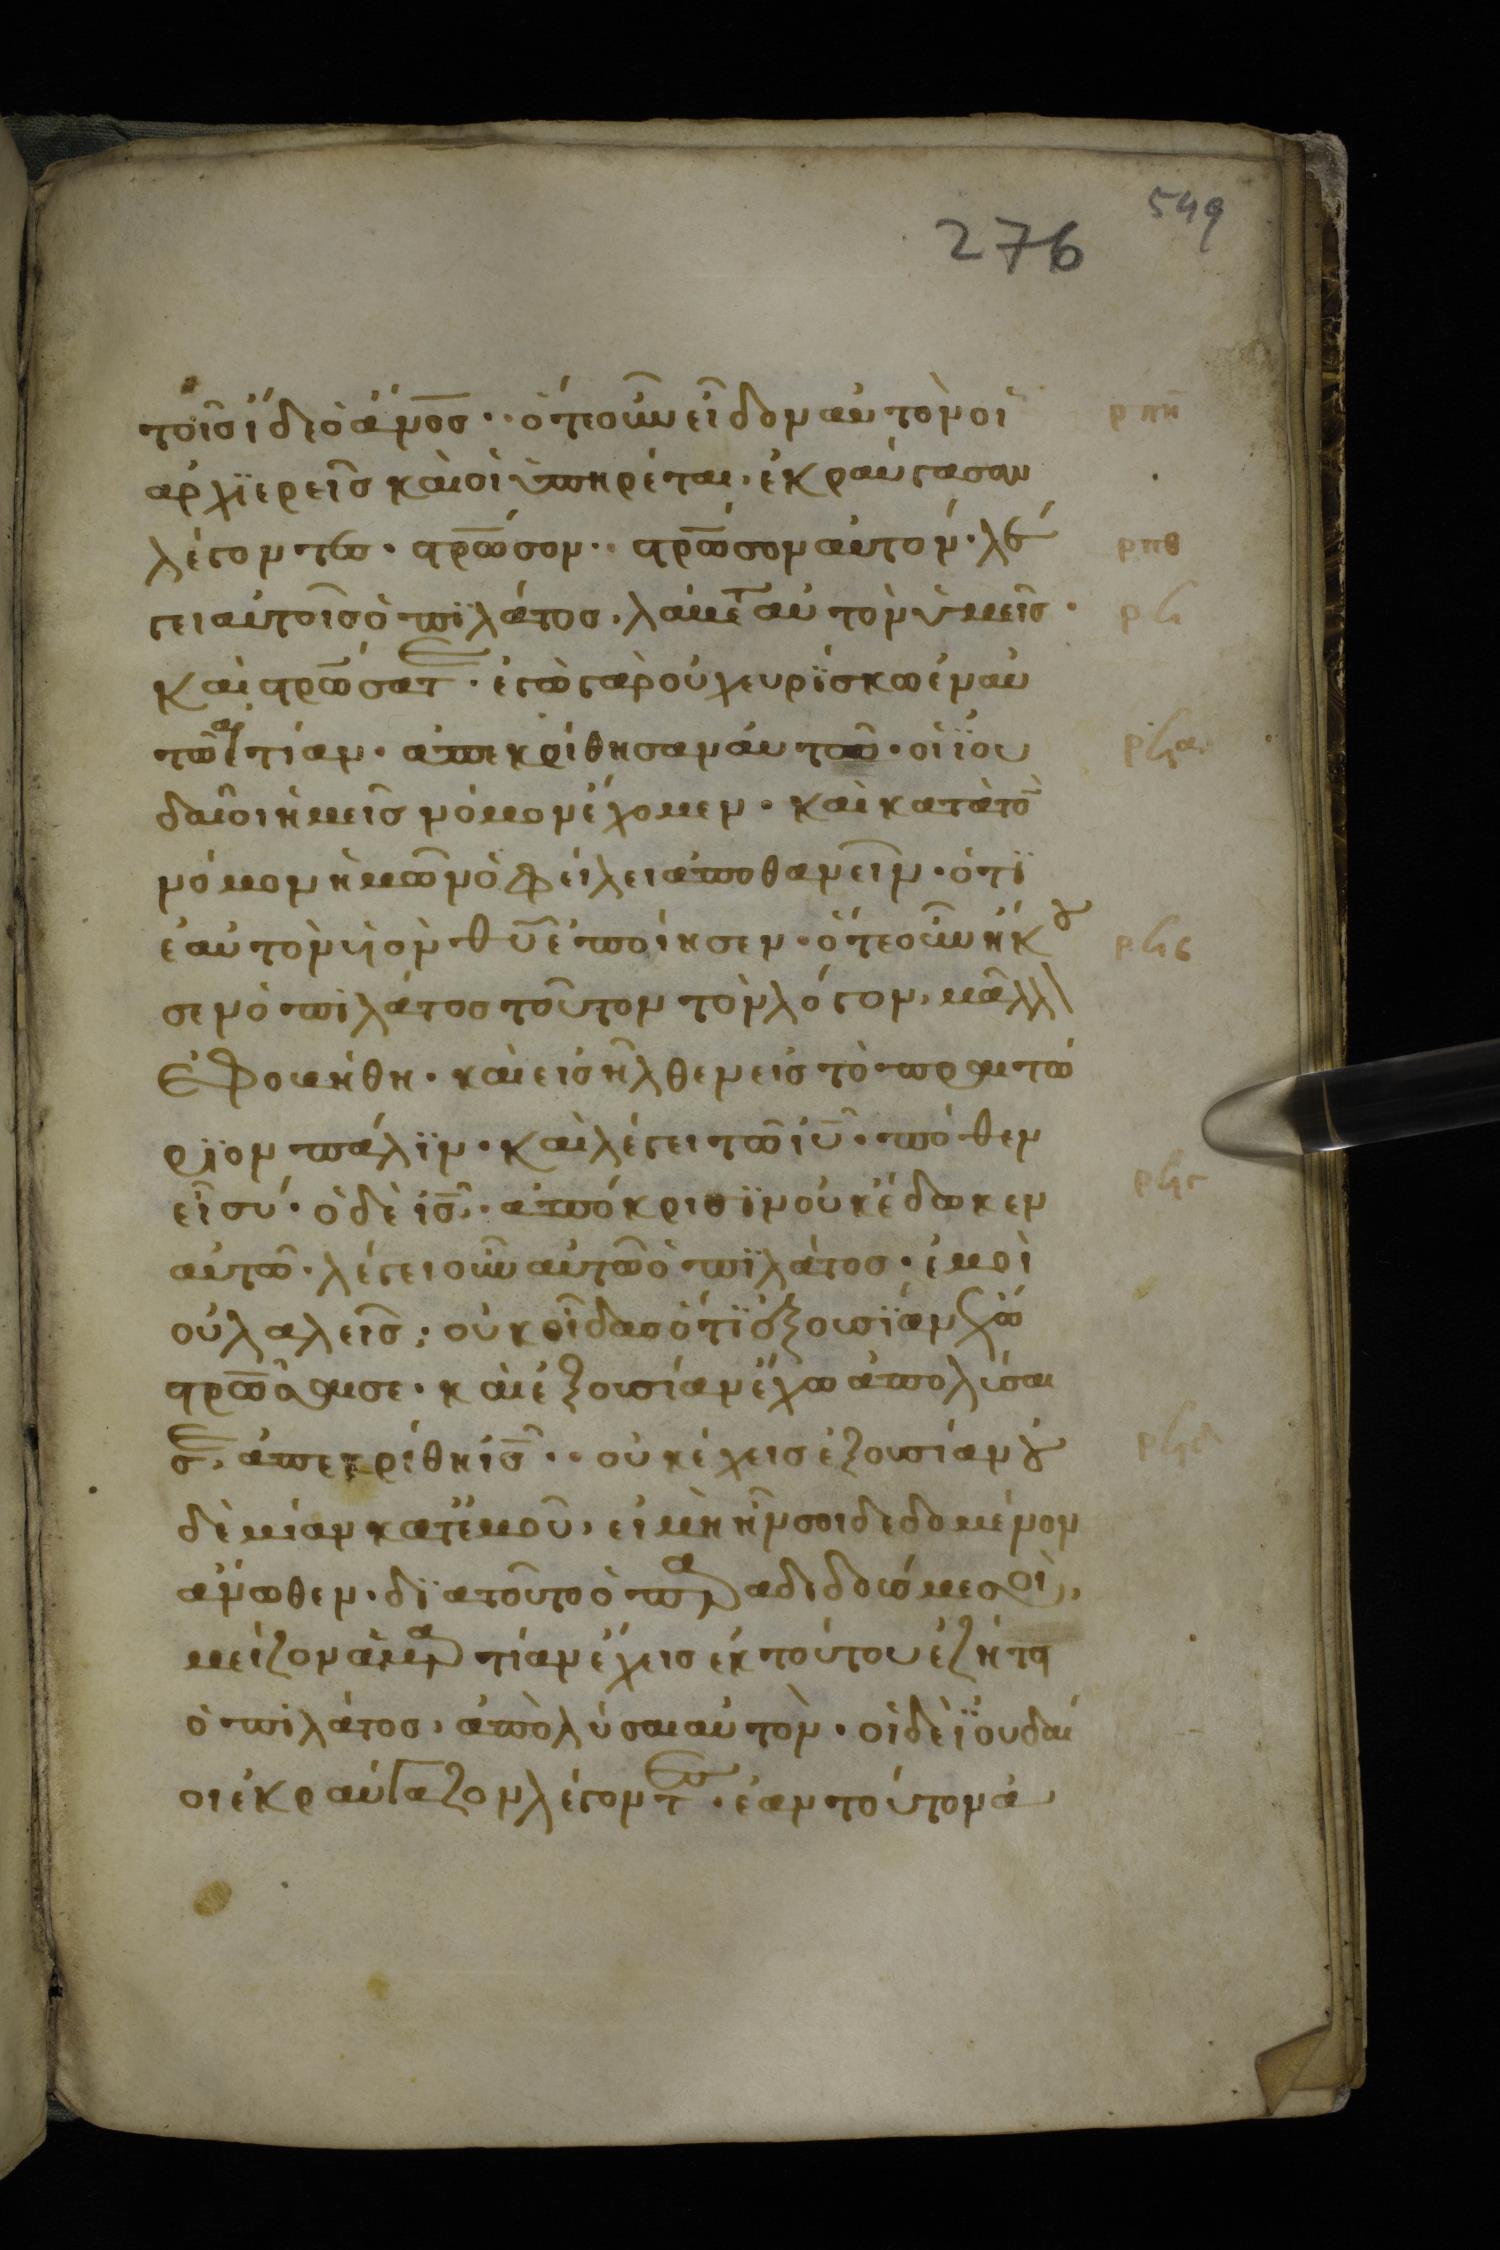 549
276
τοῖς ἴδε ὁ ἄνο̅ς·· ὅτε οὖν εἶδον αὐτὸν οἱ
ρπη
ἀρχϊερεῖς καὶ οἱ ὑπηρέται, ἐκραύγασαν
λέγοντες· στρω̅σον·· στρω̅σον αὐτόν· λέ
ρπθ
γει αὐτοῖς ὁ πϊλάτος, λάβετε αὐτὸν ὑμεῖς·
ρϟ
καὶ στρω̅σατε· ἐγὼ γὰρ οὐχ εὑρΐσκω ἐν αὐ
τῶ αἰτίαν· ἀπεκρίθησαν αὐτῶ· οἱ ϊου
ρϟα
δαῖοι ἡμεῖς νόμον ἔχομεν· καὶ κατὰ τὸ
νόμον ἡμῶν ὀφείλει ἀποθανεῖν· ὅτϊ
ἑαυτὸν υἱὸν θυ̅ ἐποίησεν· ὅτε οὖν ἤκου
σεν ὁ πιλάτος τοῦτον τὸν λόγον, μᾶλλ
ἐφοβήθη· καὶ εἰσῆλθεν εἰς τὸ πραιτώ
ρϊον πάλϊν· καὶ λέγει τῶ ιυ̅· πόθεν
εἶ σύ· ὁ δὲ ις̅· ἀπόκρισϊν οὐκ ἔδωκεν
αὐτῶ· λέγει οὖν αὐτῶ ὁ πϊλάτος· ἐμοὶ
οὐ λαλεῖς; οὐκ οἶδας ὅτϊ ἐξουσϊαν ἔχω
στρω̅σαι σε· καὶ ἐξουσίαν ἔχω ἀπολύσαι
σε, ἀπεκρίθη ις̅·· οὐκ ἔχεις ἐξουσίαν οὐ
δὲ μίαν κατ' ἐμοῦ, εἰ μὴ ἦν σοι δεδομένον
ἄνωθεν· δϊατοῦτο ὁ παραδιδούς με σοὶ,
μείζον ἁμαρτίαν ἔχεις ἐκ τούτου ἐζήτει
ὁ πϊλάτος, ἀπολύσαι αὐτὸν· οἱ δὲ ϊουδαί
οι ἐκραύγαζον λέγοντες· ἐὰν τοῦτον ἀ